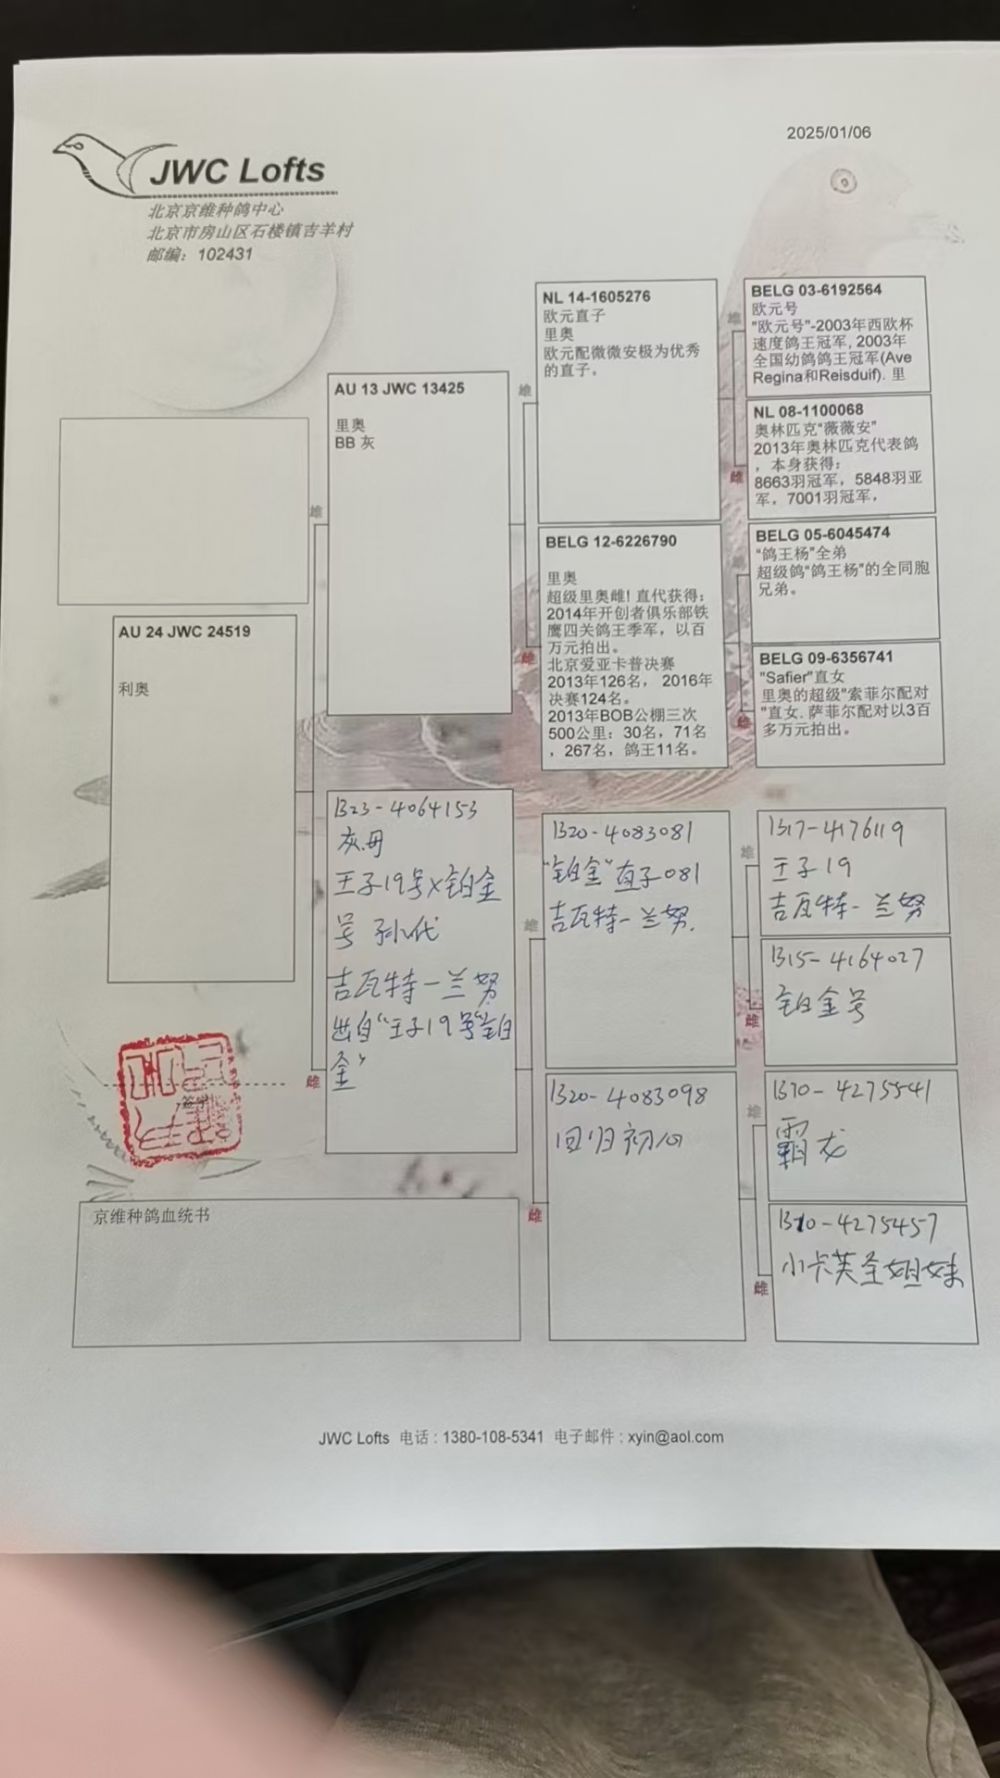 2025/01/06
JWC Lofts
北京京维种鸽中心
北京市房山区石楼镇吉羊村
邮编：102431
AU 24 JWC 24519
利奥
雄
AU 13 JWC 13425
里奥
BB 灰
雄
NL 14-1605276
欧元直子
里奥
欧元配微微安极为优秀
的直子，
雄
BELG 03-6192564
欧元号
"欧元号"-2003年西欧杯
速度鸽王冠军, 2003年
全国幼鸽鸽王冠军(Ave
Regina和Reisduif). 里
雌
NL 08-1100068
奥林匹克"薇薇安"
2013年奥林匹克代表鸽
，本身获得：
8663羽冠军，5848羽亚
军，7001羽冠军，
雌
BELG 12-6226790
里奥
超级里奥雌! 直代获得：
2014年开创者俱乐部铁
鹰四关鸽王季军，以百
万元拍出。
北京爱亚卡普决赛
2013年126名， 2016年
决赛124名。
2013年BOB公棚三次
500公里：30名，71名
，267名，鸽王11名。
BELG 05-6045474
"鸽王杨"全弟
超级鸽"鸽王杨"的全同胞
兄弟。
雌
BELG 09-6356741
"Safier"直女
里奥的超级"索菲尔配对
"直女. 萨菲尔配对以3百
多万元拍出。
雌
B23-4064153
灰母
王子19号×铂金
号 孙代
吉瓦特-兰努
出自"王子19号"铂
金"
雄
B20-4083081
"铂金"直子081
吉瓦特-兰努.
雄
B17-4176119
王子19
吉瓦特-兰努
雌
B15-4164027
铂金号
雌
B20-4083098
回归初心
雄
B10-4275541
霸龙
雌
B10-4275457
小卡芙全姐妹
京维种鸽血统书
JWC Lofts 电话 : 1380-108-5341 电子邮件 : xyin@aol.com